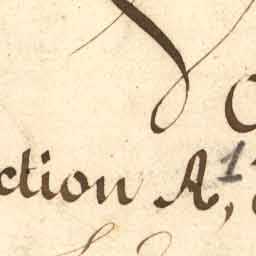 ction A, 1